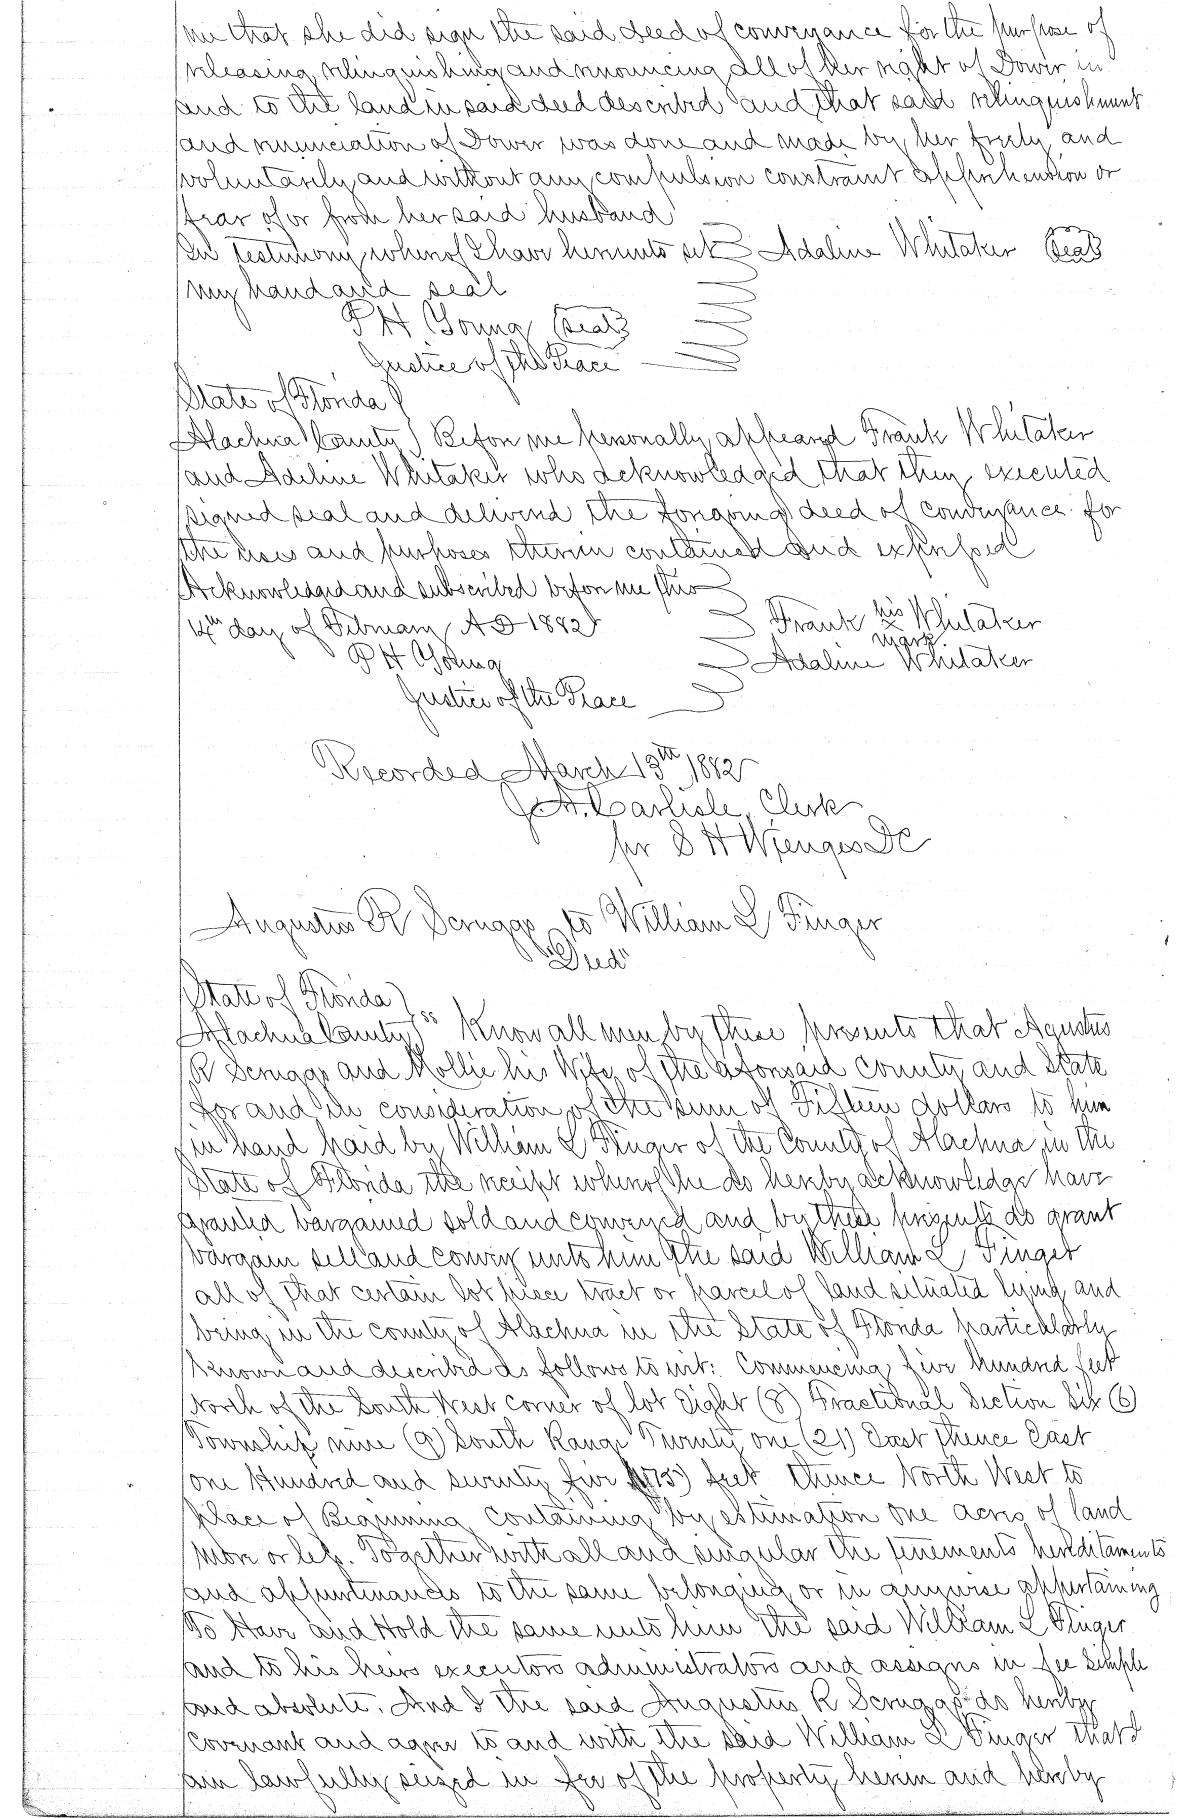 me that she did sign the said deed of conveyance for the purpose of
releasing relinquishing and renouncing all of her right of Dower in
and to the land in said deed described and that said relinquishment
and renunciation of Dower was done and made by her freely and
voluntarily and without any compulsion constraint apprehension or
fear of or from her said husband
In testimony whereof I have hereunto set Adaline Whitaker (seal)
my hand and seal
P H Young (seal)
Justice of the Peace
State of Florida
Alachua County) Before me personally appeared Frank Whitaker
and Adeline Whitaker who acknowledged that they executed
signed seal and delivered the foregoing deed of conveyance for
the uses and purposes therein contained and expressed
Acknowledged and subscribed before me this
14th day of February A D 1882 Frank his x mark Whitaker
P H Young Adaline Whitaker
Justice of the Peace
Recorded March 13th 1882
J. A. Carlisle, Clerk
per S H Wienges DC
Augustus R Scruggs to William L Finger
"Deed"
State of Florida)
Alachua County) ss Know all men by these presents that Agustus
R Scruggs and Mollie his Wife of the aforesaid County and State
for and in consideration of the sum of Fifteen dollars to him
in hand paid by William L Finger of the County of Alachua in the
State of Florida the receipt whereof he do hereby acknowledge have
granted bargained sold and conveyed and by these presents do grant
bargain sell and convey unto him the said William L Finger
all of that certain lot piece tract or parcel of land situated lying and
being in the county of Alachua in the State of Florida particularly
known and described as follows to wit: Commencing five hundred feet
North of the South West corner of lot Eight (8) Fractional Section Six (6)
Township nine (9) South Range Twenty one (21) East thence East
one Hundred and seventy five (175) feet thence North West to
place of Beginning containing by estimation one acres of land
more or less. Together with all and singular the tenements hereditaments
and appurtenances to the same belonging or in anywise appertaining
To Have and Hold the same unto him the said William L Finger
and to his heirs executors administrators and assigns in fee simple
and absolute. And I the said Augustus R Scruggs do hereby
covenant and agree to and with the said William L Finger that I
am lawfully seized in fee of the property herein and hereby